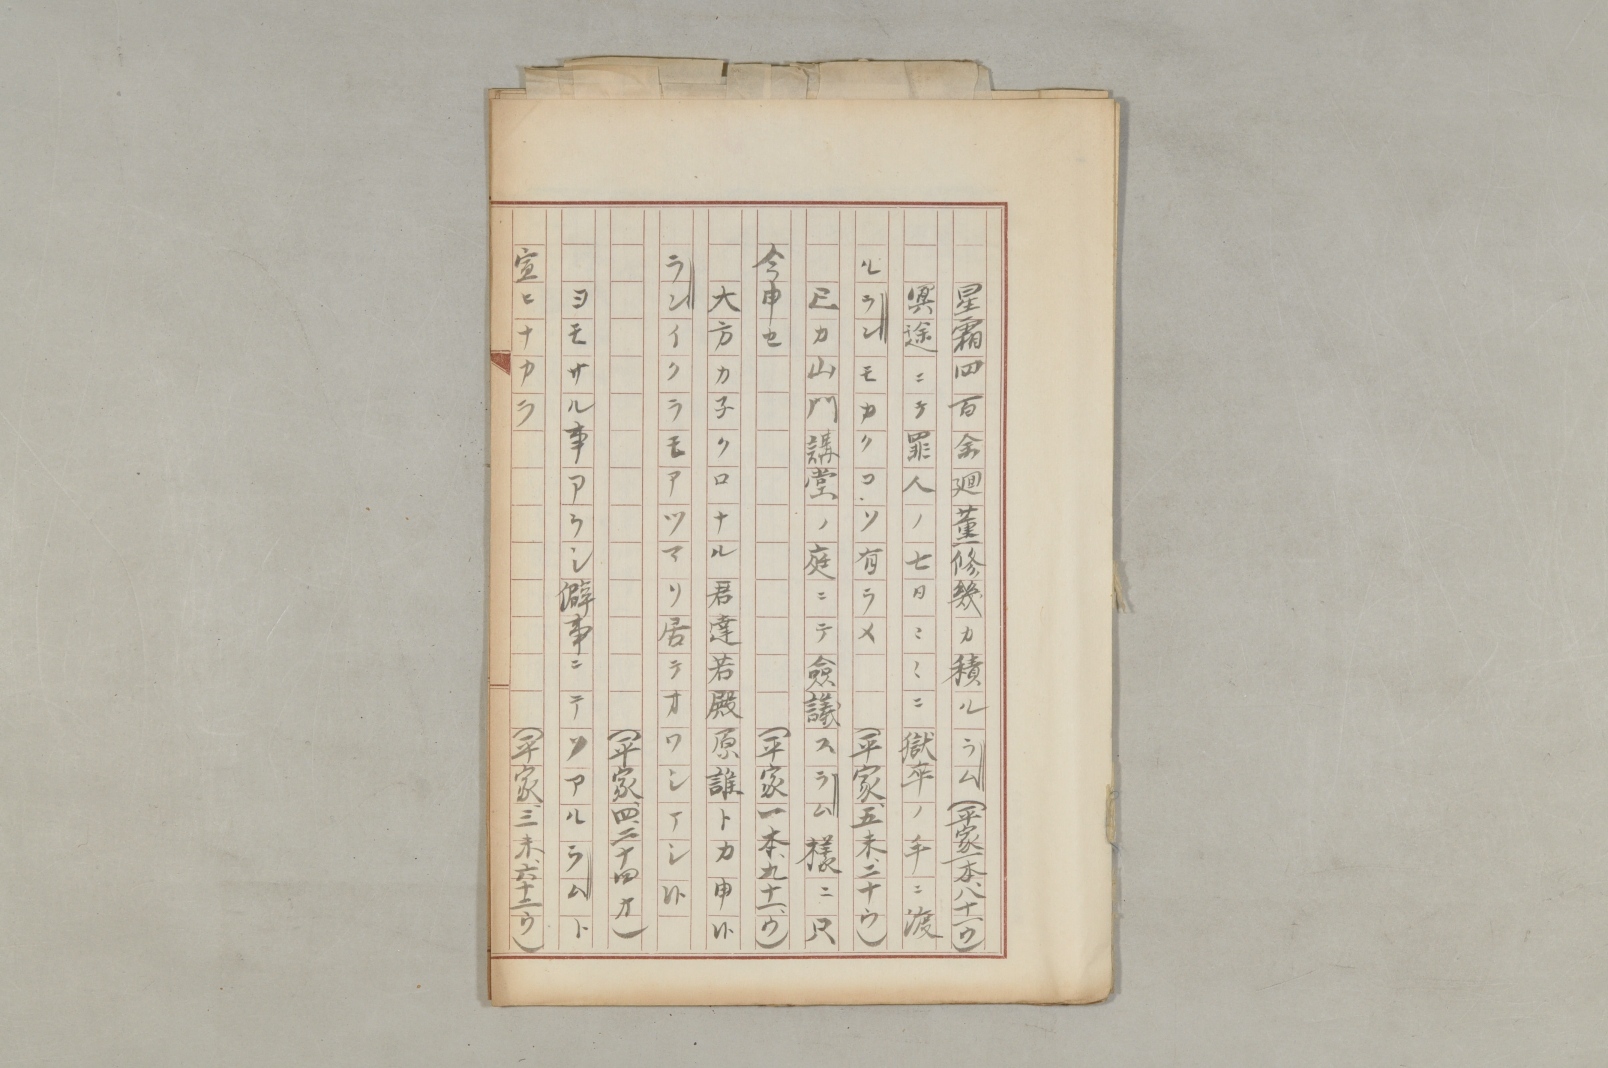 星霜四百余廻薫修幾カ積ルラム(平家一本、八十一ウ)
冥途ニテ罪人ノ七日ミミニ獄卒ノ手ニ渡
ルランモカクコソ有ラメ(平家、五末、二十ウ)
已カ山門講堂ノ庭ニテ僉議スラム様ニ只
今申セ(平家一本、九十一、ウ)
大方カ子クロナル君達若殿原誰トカ申
ランイクラモアツマリ居テオワシアシ
(平家、四、二十四オ)
ヨモサル事アラシ僻事ニテソアルラムト
宣ヒナカラ(平家、三末、六十二ウ)